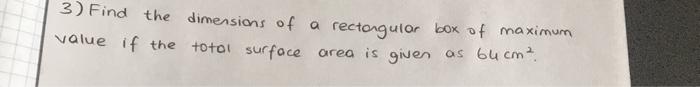 3) Find the dimensions of a rectangular box of maximum
value if the total surface area is given as 64 cm².